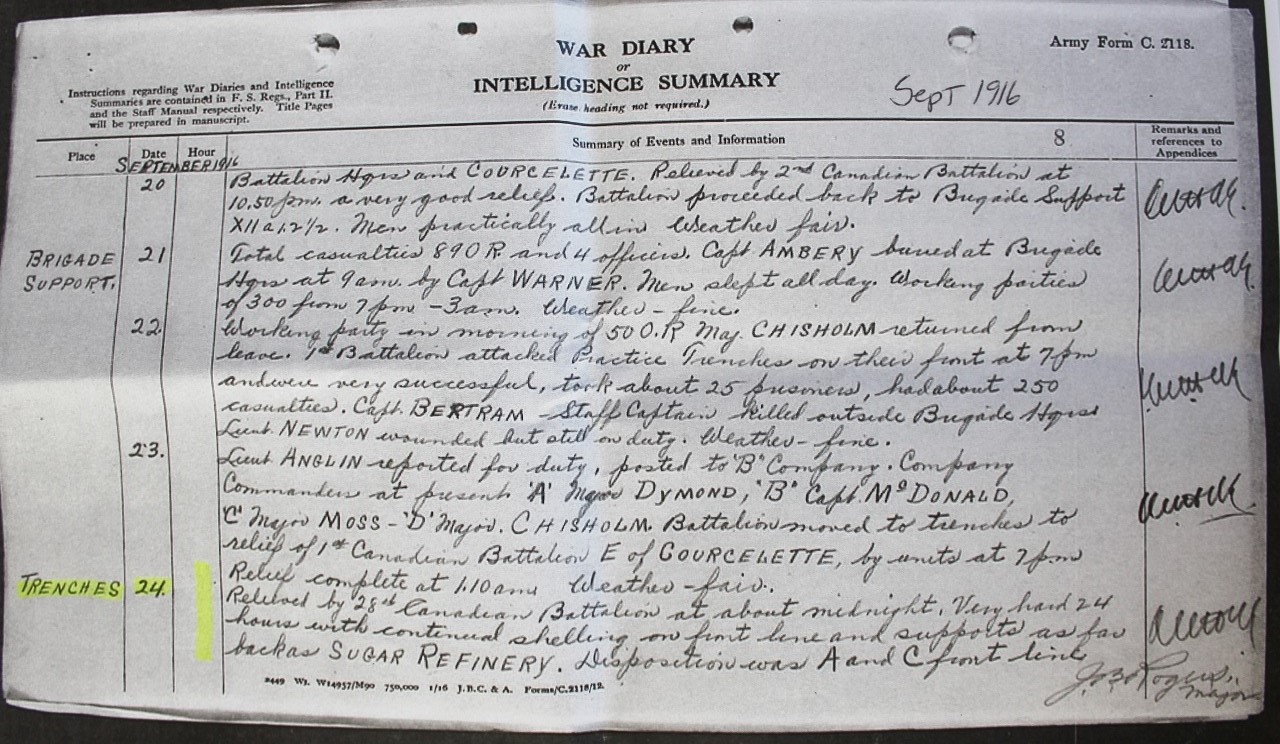 WAR DIARY
or
INTELLIGENCE SUMMARY
(Erase heading not required.)
Army Form C. 2118.
Instructions regarding War Diaries and Intelligence
Summaries are contained in F. S. Regs., Part II.
and the Staff Manual respectively. Title Pages
will be prepared in manuscript.
Sept 1916
Place Date Hour Summary of Events and Information 8 Remarks and
references to
Appendices
SEPTEMBER 1916
20 Battalion Hqrs and COURCELETTE. Relieved by 2nd Canadian Battalion at
10.50 pm. a very good relief. Battalion proceeded back to Brigade Support
Men practically all in Weather fair.
BRIGADE 21 Total casualties 89 O R. and 4 officers. Capt AMBERY buried at Brigade
SUPPORT. Hqrs at 9 am. by Capt WARNER. Men slept all day. Working parties
of 300 from 7 pm - 3 am. Weather - fine.
22. Working party in morning of 50 O.R Maj CHISHOLM returned from
leave. 1st Battalion attacked Practice Trenches on their front at 7 pm
and were very successful, took about 25 prisoners, had about 250
casualties. Capt. BERTRAM - Staff Captain killed outside Brigade Hqrs
Lieut NEWTON wounded but still on duty. Weather - fine.
23. Lieut ANGLIN reported for duty, posted to "B" Company. Company
Commanders at present 'A' Major DYMOND, "B" Capt. McDONALD,
'C' Major MOSS - 'D' Major. CHISHOLM. Battalion moved to trenches to
relief of 1st Canadian Battalion E of COURCELETTE, by units at 7 pm
Relief complete at 1.10 am Weather - fair.
TRENCHES 24. Relieved by 28th Canadian Battalion at about midnight. Very hard 24
hours with continual shelling on front line and supports as far
back as SUGAR REFINERY. Disposition was A and C front line
Rogers,
Major
2449 Wt. W14957/M90 750,000 1/16 J.B.C. & A. Forms/C.2118/12.